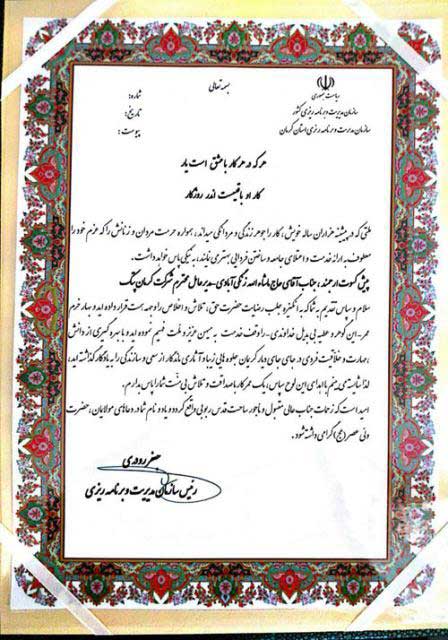 بسمه تعالی
ریاست جمهوری
سازمان مدیریت و برنامه ریزی کشور
سازمان مدیریت و برنامه ریزی استان کرمان
شماره:
تاریخ:
پیوست:
هر که در هر کار با عشق است یار
کار او باقیست اندر روزگار
ملتی که در پیشینه هزاران ساله خویش، کار را جوهر زندگی و مردانگی میداند، همواره حرمت مردان و زنانش را که عزم خود را
معطوف به ارائه خدمت و اعتلای جامعه و ساختن فردایی بهتر می نمایند، به نیکی پاس خواهد داشت.
پیش کسوت ارجمند، جناب آقای حاج ماشاء الله زنگی آبادی - مدیر عامل محترم شرکت کرمان سنگ
سلام و سپاس تقدیم به شما که به انگیزه جلب رضایت حضرت حق، تلاش و اخلاص را وجهه همت قرار داده اید و بهار خرم
عمر - این گوهر و عطیه بی بدیل خداوندی - را وقف خدمت به میهن عزیز و ملت فهیم نموده اید و با بهره گیری از دانش
، مهارت و خلاقیت فردی در جای جای دیار کریمان جلوه هایی زیبا و آثاری ماندگار از سعی و سازندگی را به یادگار گذاشته اید،
لذا شایسته می بینم با اهدای این لوح سپاس، یک عمر کار با صداقت و تلاش بی منت شما را پاس بدارم.
امید است که زحمات جناب عالی مقبول و ماجور ساحت قدس ربوبی واقع گردد و یاد و نام شما در دعاهای مولایمان، حضرت
ولی عصر (عج) گرامی داشته شود.
جعفر رودری
رئیس سازمان مدیریت و برنامه ریزی